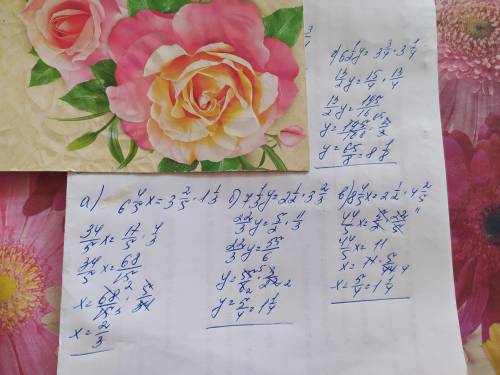 г) 6 1/2 y = 3 3/4 · 3 1/4
13/2 y = 15/4 · 13/4
13/2 y = 195/16
y = 195/16 8 · 2/13
y = 65/8 = 8 1/8
а) 6 4/5 x = 3 2/5 · 1 1/3
34/5 x = 17/5 · 4/3
34/5 x = 68/15
x = 68 2/15 3 · 5/34
x = 2/3
б) 7 1/3 y = 2 1/2 · 3 2/3
22/3 y = 5/2 · 11/3
22/3 y = 55/6
y = 55 5/6 2 · 3/22 2
y = 5/4 = 1 1/4
в) 8 4/5 x = 2 1/2 · 4 2/5
44/5 x = 5/2 · 22/5 11
44/5 x = 11
x = 11 · 5/44 4
x = 5/4 = 1 1/4